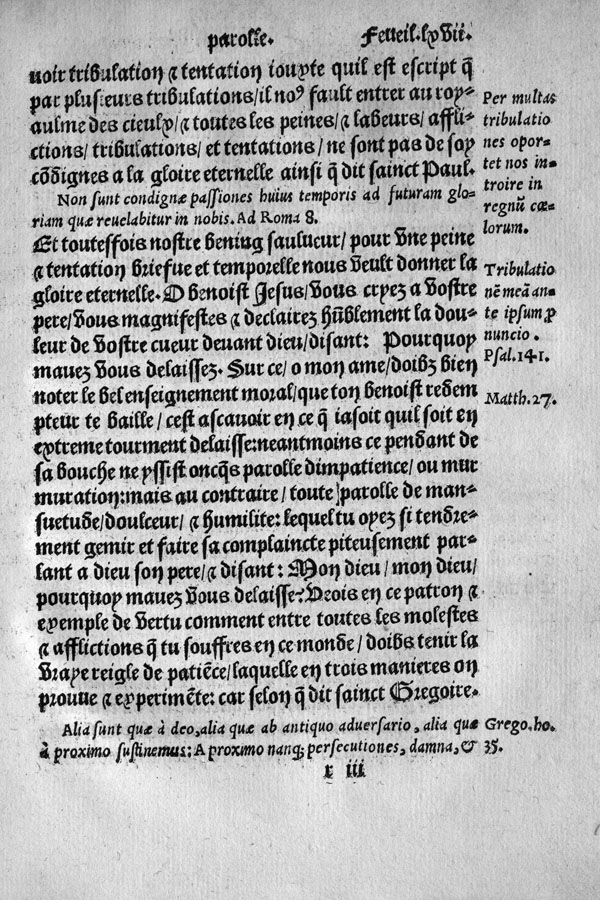 parolle. Feueil. lxvii.
uoir tribulation ⁊ tentation iouxte quil est escript q̄
par plusieurs tribulations/il noꝰ fault entrer au roy-
aulme des cieulx/⁊ toutes les peines/⁊ labeurs/affli-
ctions/tribulations/et tentations/ne sont pas de soy
cōdignes a la gloire eternelle ainsi q̄ dit sainct Paul.
Non sunt condignæ passiones huius temporis ad futuram glo-
riam quæ reuelabitur in nobis. Ad Roma 8.
Et toutesfois nostre bening saulueur/pour vne peine
⁊ tentation briefue et temporelle nous veult donner la
gloire eternelle. O benoist Jesus/vous cryez a vostre
pere/vous magnifestes ⁊ declairez hūblement la dou-
leur de vostre cueur deuant dieu/disant: Pourquoy
mauez vous delaissez. Sur ce/o mon ame/doibz bien
noter le bel enseignement moral/que ton benoist redem
pteur te baille/cest ascauoir en ce q̄ iasoit quil soit en
extreme tourment delaisse:neantmoins ce pendant de
sa bouche ne yssist oncq̄s parolle dimpatience/ou mur
muration:mais au contraire/toute parolle de man-
suetude/doulceur/⁊ humilite:lequel tu oyez si tendre-
ment gemir et faire sa complaincte piteusement par-
lant a dieu son pere/⁊ disant: Mon dieu/mon dieu/
pourquoy mauez vous delaisse? Vrois en ce patron ⁊
exemple de vertu comment entre toutes les molestes
⁊ afflictions q̄ tu souffres en ce monde/doibs tenir la
vraye reigle de patiēce/laquelle en trois manieres on
prouue ⁊ experimēte: car selon q̄ dit sainct Gregoire.
Alia sunt quæ à deo, alia quæ ab antiquo aduersario, alia quæ
à proximo sustinemus: A proximo nanq; persecutiones, damna, &
x iii
Per multas
tribulatio
nes opor-
tet nos in-
troire in
regnū cæ-
lorum.
Tribulatio
nē meā an-
te ipsum ꝓ
nuncio.
Psal. 141.
Matth. 27.
Grego. ho.
35.